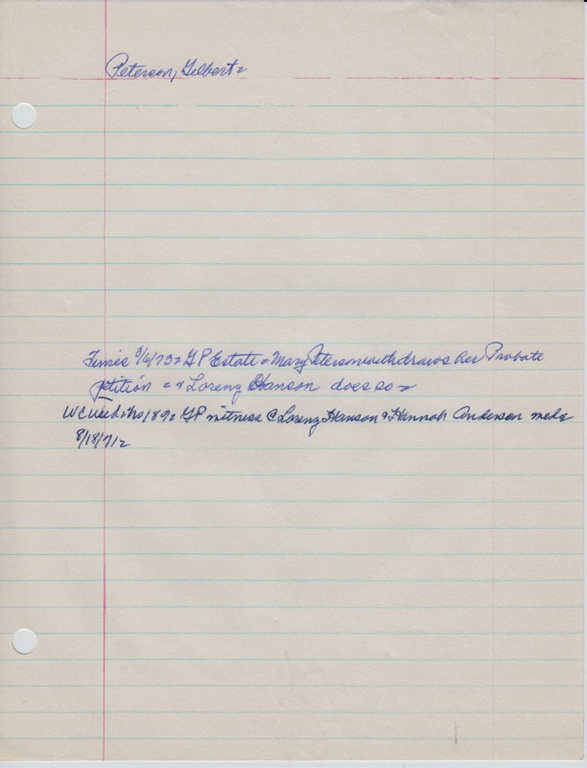 Peterson, Gilbert=
Times 9/6/73= GP Estate = Mary Peterson withdraws her Probate
petition = + Lorenz Hanson does so=
WC Wed: No 189= GP witness @ Lorenz Hanson + Hannah Anderson
8/18/71=